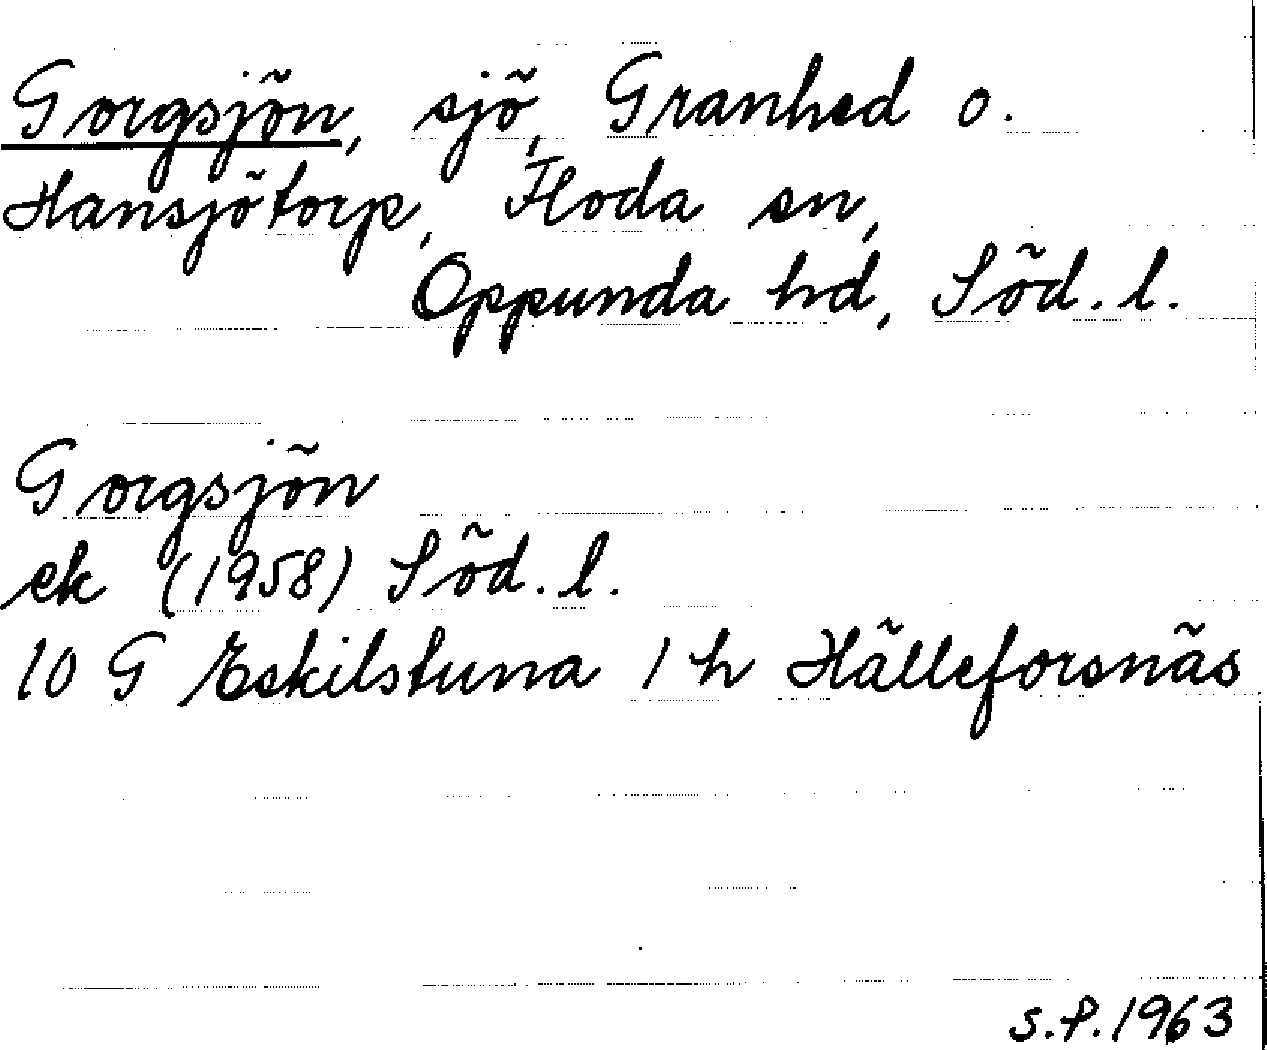 Gorgsjön, sjö, Granhed o.
Hansjötorp, Floda sn,
Oppunda hd, Söd. l.
Gorgsjön
ek (1958) Söd. l.
10 G Eskilstuna 1 h Hälleforsnäs
S.P. 1963